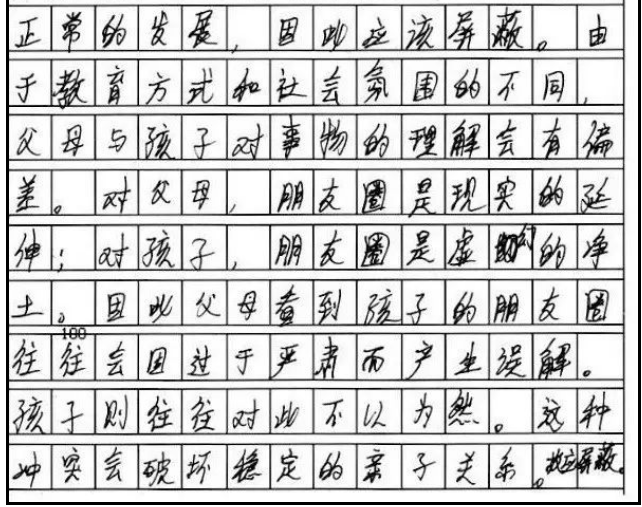 正常的发展,因此应该屏蔽。由
于教育方式和社会氛围的不同,
父母与孩子对事物的理解会有偏
差。对父母,朋友圈是现实的延
伸;对孩子,朋友圈是虚的净
土。因此父母查到孩子的朋友圈
100
往往会因过于严肃而产生误解。
孩子则往往对此不以为然。这种
冲突会破坏稳定的亲子关系。故应屏蔽。